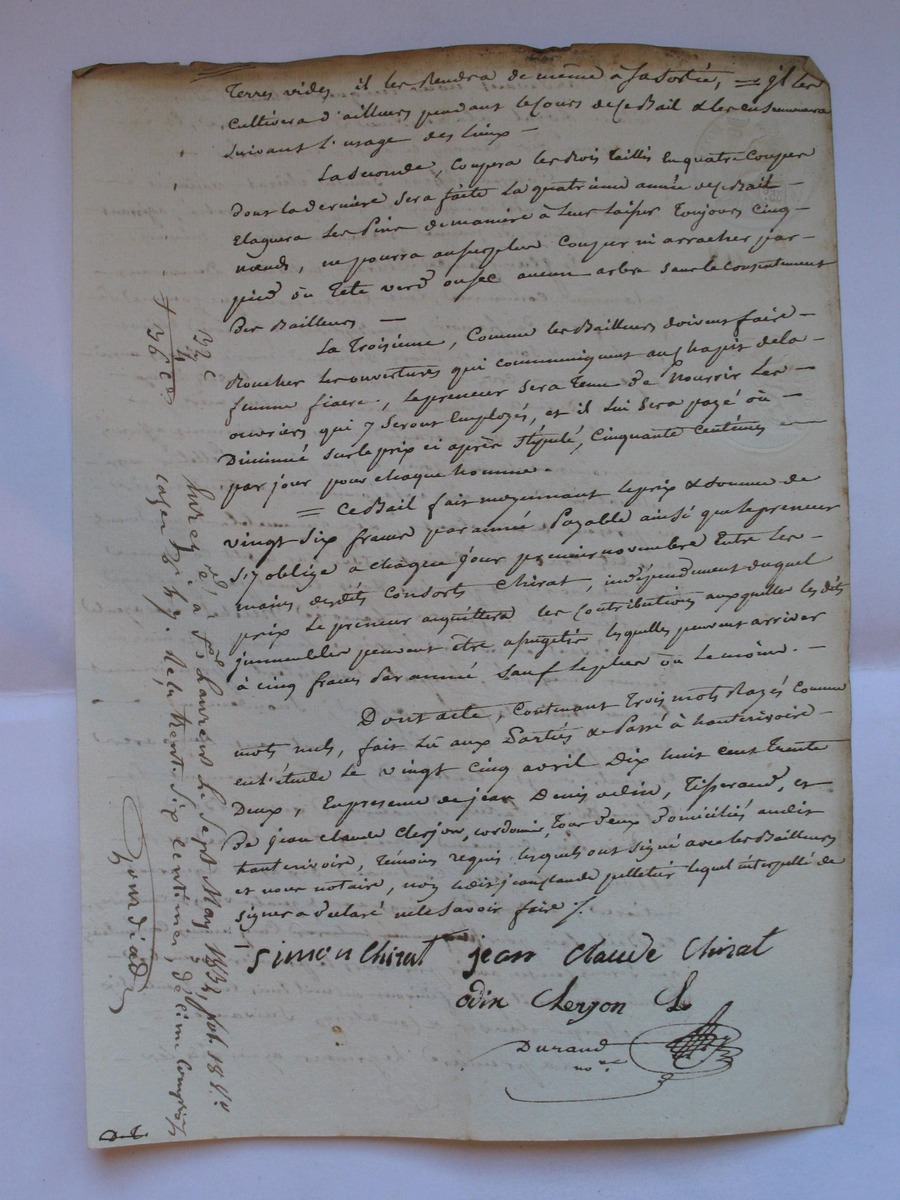 Terres vides il les Rendra de même à sa sortie, — il les
Cultivera d'ailleurs pendant le Cours de ce Bail & les ensemencera
suivant l'usage des lieux —
La seconde, Coupera les Bois taillis en quatre Coupes
dont la derniere sera faite la quatrieme année de ce Bail —
Elaguera les Pins de maniere à leur laisser toujours Cinq —
nœuds, ne pourra au surplus Couper ni arracher par —
pied ou tete verd ou sec aucun arbre sans le Consentement
des Bailleurs —
La Troisieme, Comme les Bailleurs doivent faire —
Boucher les ouvertures qui communiquent au de la —
femme fiacre, le preneur sera tenu de Nourrir les —
ouvriers qui y seront Employés, et il lui sera payé ou —
Diminué sur le prix ci après stipulé, Cinquante centimes —
par jour pour chaque homme.
= Ce Bail fait moyennant le prix & somme de
vingt six francs par année Payable ainsi que le preneur
s'y oblige à chaque jour premier novembre Entre les —
mains desdits Consorts Chirat, indépendament duquel
prix Le preneur acquittera les Contributions auxquelles lesdits
immeubles peuvent être assujetis lesquelles peuvent arriver
à cinq francs Par année Sauf le plus ou le moins. —
Dont acte, Contenant Trois mots Rayés Comme
mots nuls, fait Lu aux Parties & Passé à hauterivoire —
en l'étude Le vingt cinq avril Dix huit cent trente
Deux, En presence de jean Denis odin, Tisserand, et
De jean Claude Clerjon, cordonier, Tous deux domiciliés audit
hauterivoire, Témoins requis lesquels ont signé avec les Bailleurs
et nous notaire, non ledit jean claude pelletier lequel interpellé de
signer a declaré ne le savoir faire ./.
Simon Chirat jean Claude Chirat
odin Clerjon
Durand
no.re
132 c
4
136 c
Enreg.ré à S.t Laurent le Sept May 1832, fol. 18 V.o
Case Reçu trente six centimes, décime Compris
D.L.